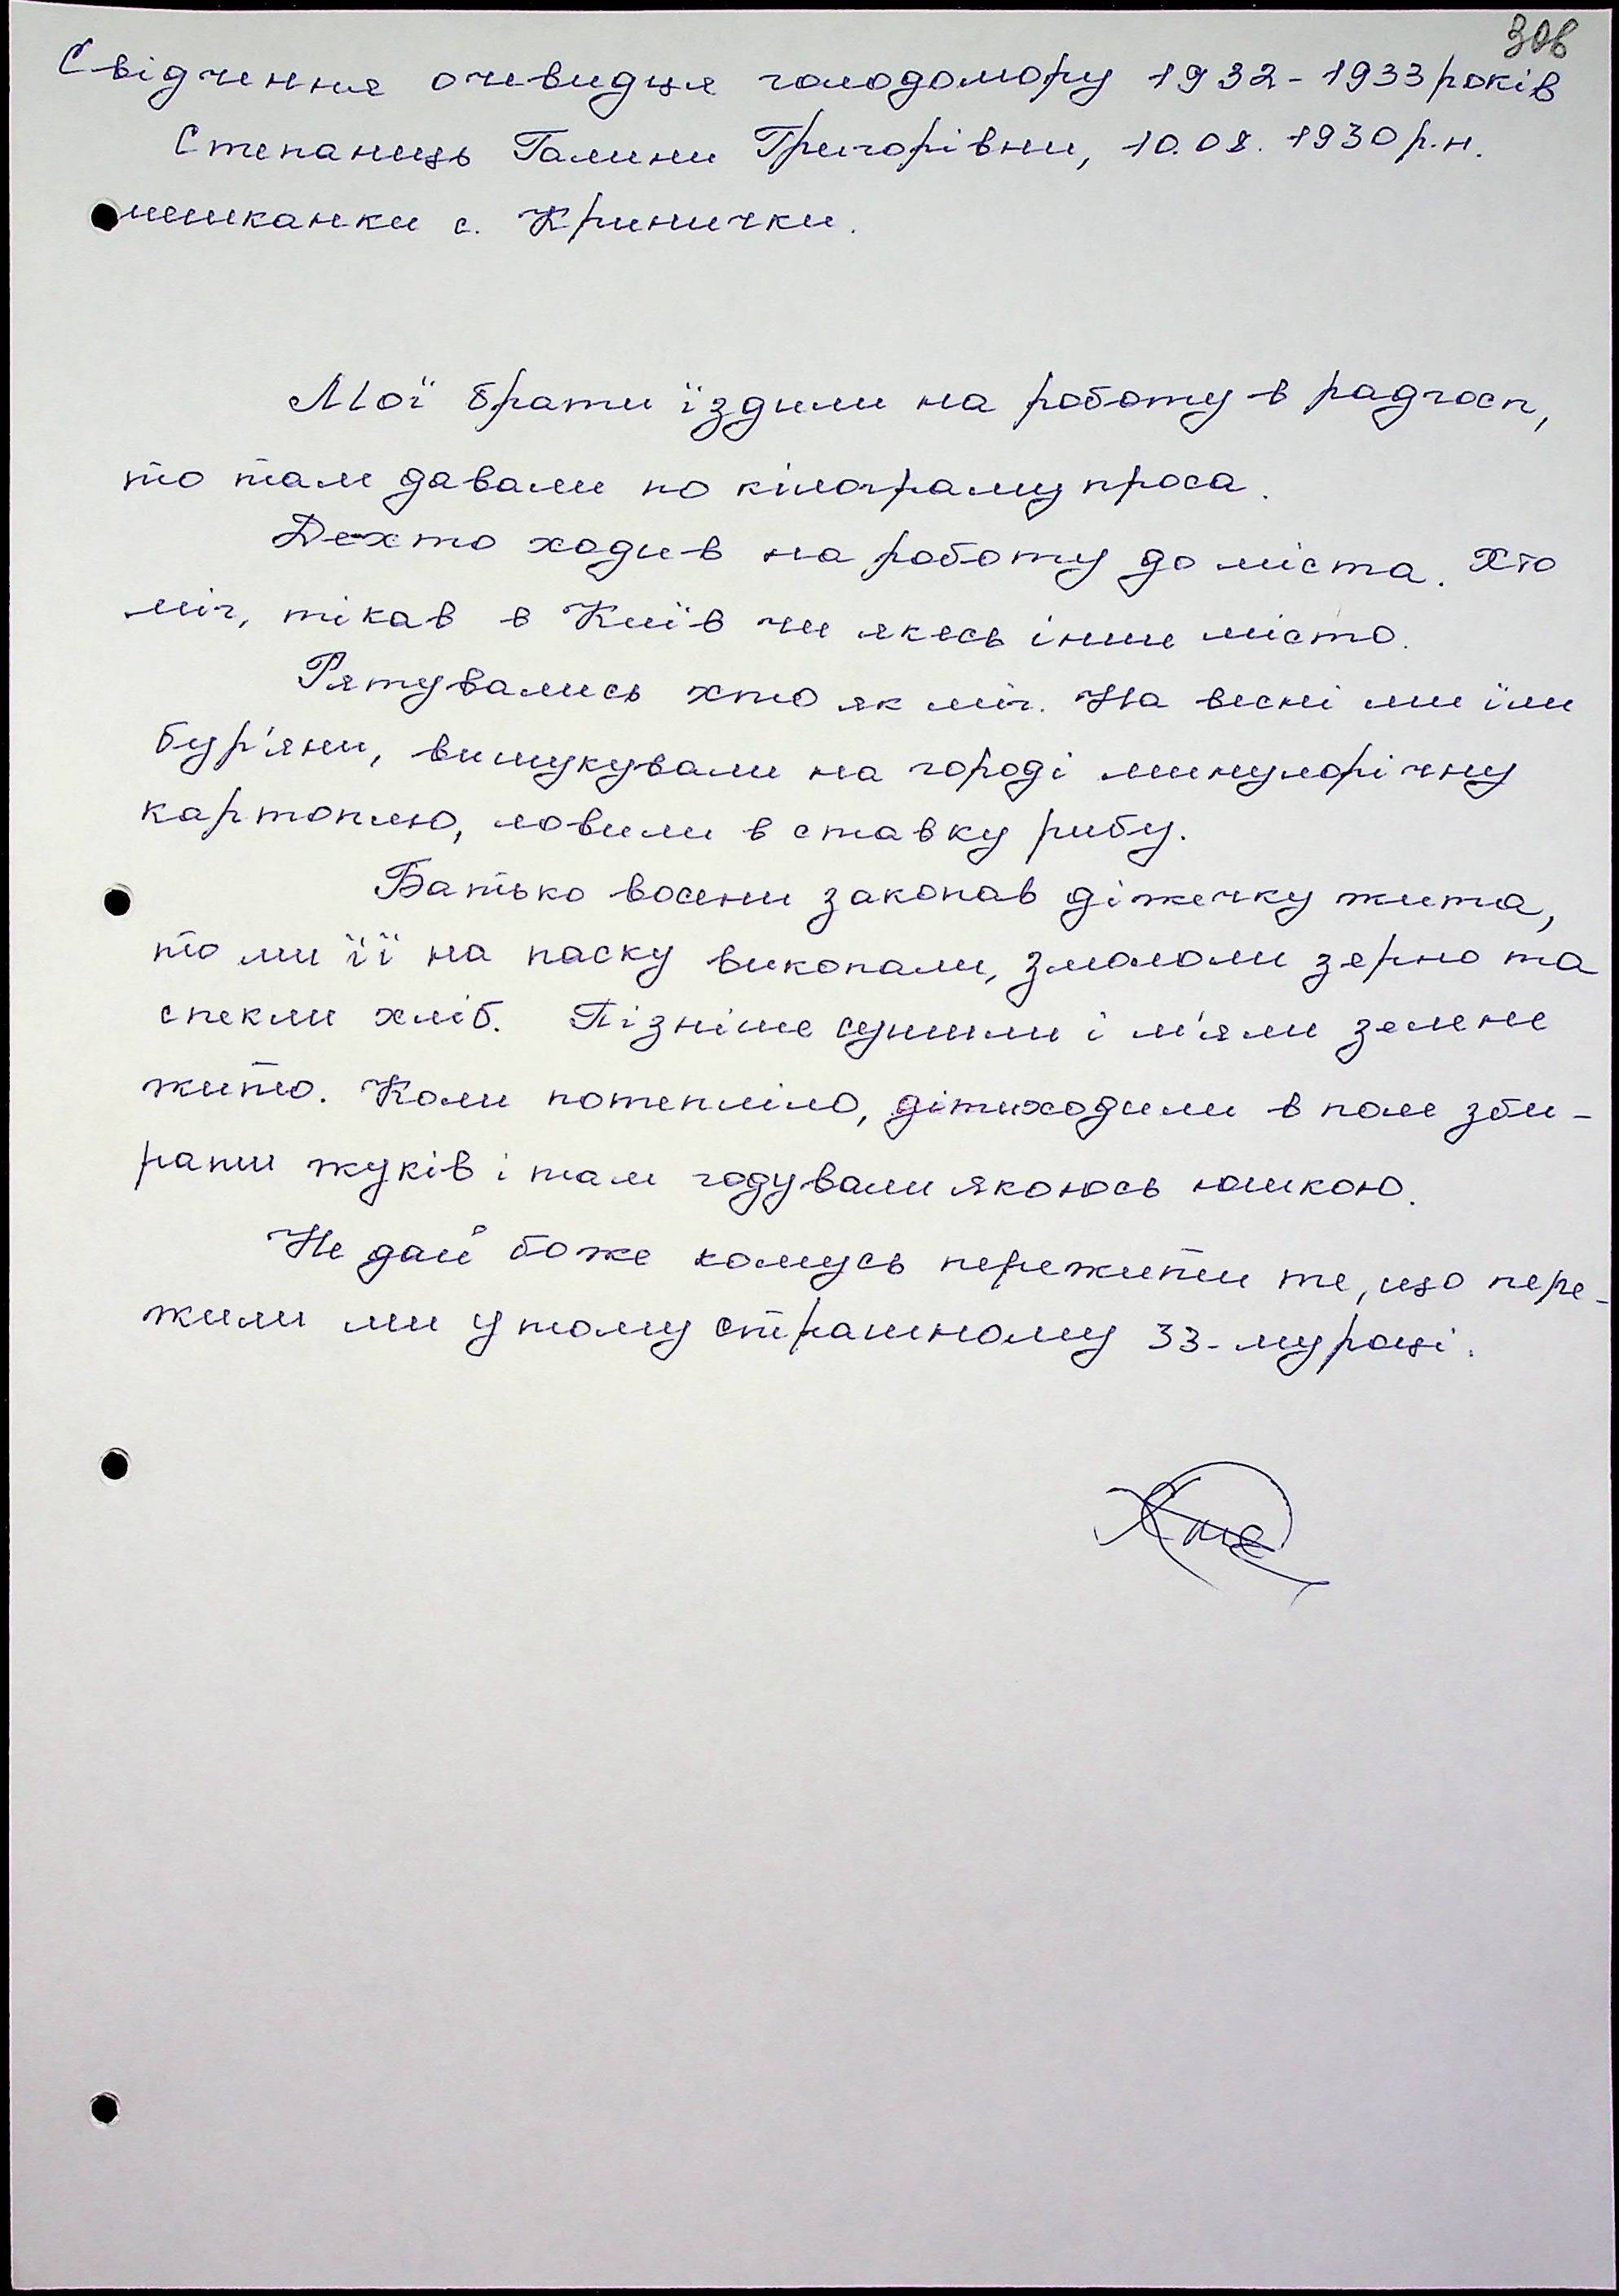 308
Свідчення очевидця голодомору 1932-1933 років
Степанець Галини Григорівни, 10.08.1930 р.н.
мешканки с. Кринички.
Мої брати їздили на роботу в радгосп,
то там давали по кілограму проса.
Дехто ходив на роботу до міста. Хто
міг, тікав в Київ чи якесь інше місто.
Рятувались хто як міг. На весні ми їли
бур'яни, вишукували на городі минулорічну
картоплю, ловили в ставку рибу.
Батько восени закопав діжечку жита,
то ми її на паску викопали, змололи зерно та
спекли хліб. Пізніше сушили і м'яли зелене
жито. Коли потепліло, діти ходили в поле зби-
рати жуків і там годували якоюсь юшкою.
Не дай боже комусь пережити те, що пере-
жили ми у тому страшному 33-му році.